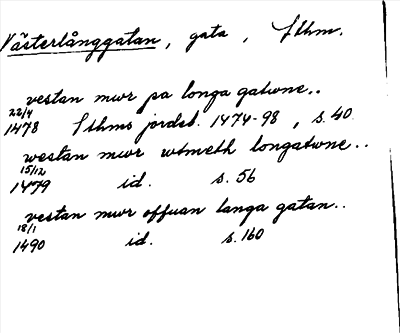 Västerlånggatan, gata, Sthm.
vestan mwr pa longa gatwne..
22/4
1478 Sthms jordeb. 1474-98, s. 40.
westan mwr wtmeth longatwne..
15/12
1479 id. s. 56
vestan mwr offuan langa gatan..
18/1
1490 id. s. 160